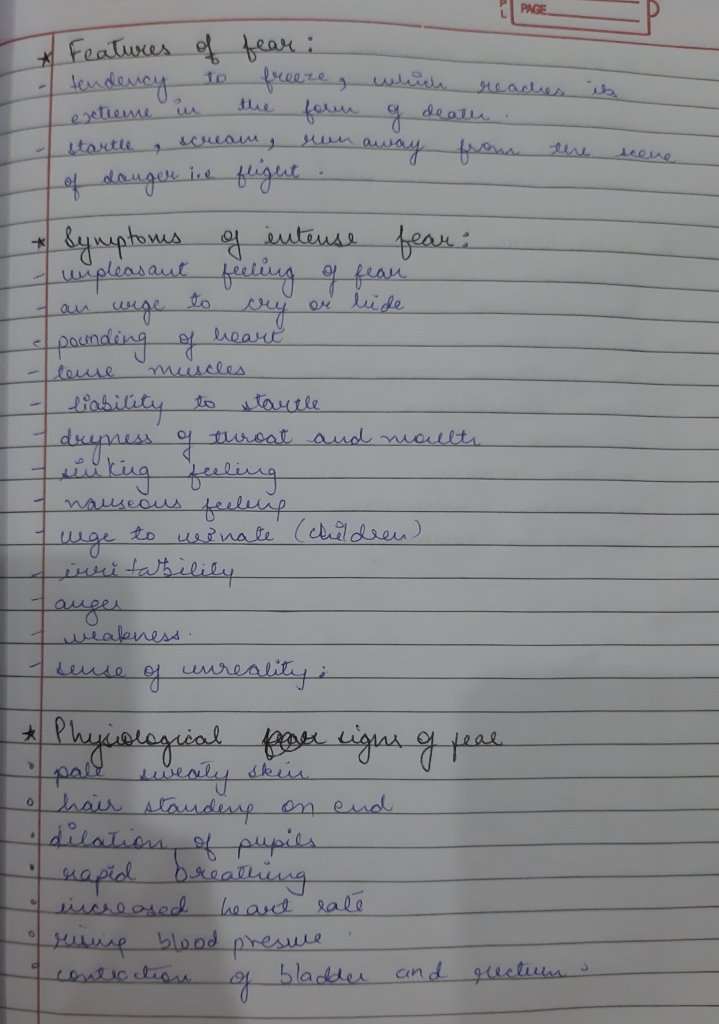 P
L
PAGE
* Features of fear :
- tendency to freeze, which reaches its
extreme in the form of death.
- startle, scream, run away from the scene
of danger i.e flight.
* Symptoms of intense fear :
- unpleasant feeling of fear
- an urge to cry or hide
- pounding of heart
- tense muscles
- liability to startle
- dryness of throat and mouth
- sinking feeling
- nauseous feeling
- urge to urinate (children)
- irritability
- anger
- weakness.
- sense of unreality.
* Physiological signs of fear
° pale sweaty skin
° hair standing on end
° dilation of pupils
° rapid breathing
° increased heart rate
° rising blood presure
° contraction of bladder and rectum.